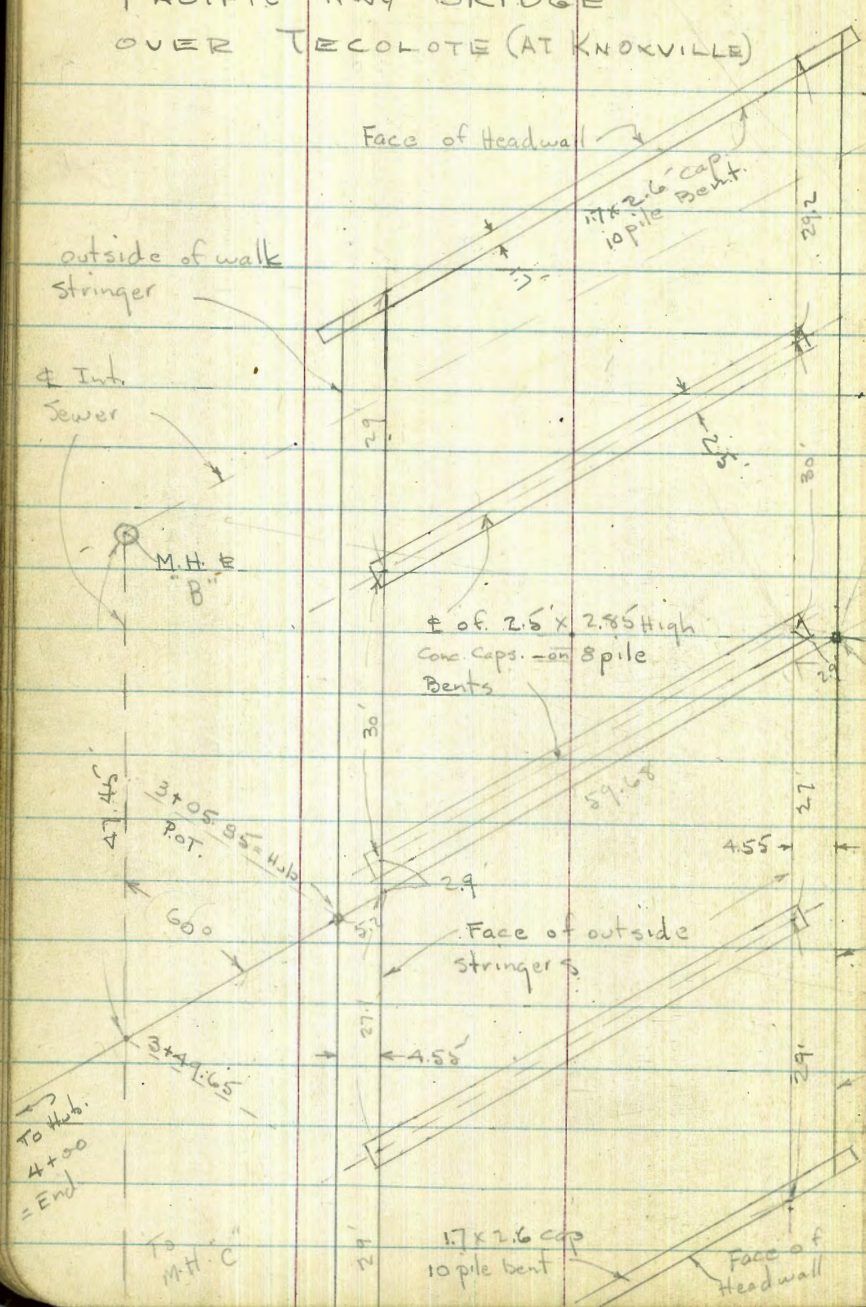 PACIFIC HWY BRIDGE
OVER TECOLOTE (AT KNOXVILLE)
Face of Headwall
1.7 x 2.6' cap
10 pile Bent.
29.2
1.7
outside of walk
Stringer
℄ Int.
Sewer
29
2.5
30'
M.H. ℄
"B"
℄ of 2.5' x 2.85 High
Conc. Caps. - on 8 pile
Bents
2.9
30'
59.68
27'
47.45
3+05.95 = Hub
P.O.T.
4.55
2.9
60°
5.2
Face of outside
stringers
27.1
4.55
3+49.65
29'
To Hub.
4+00
= End.
To
M.H. "C"
29'
1.7 x 2.6 cap
10 pile bent
Face of
Headwall